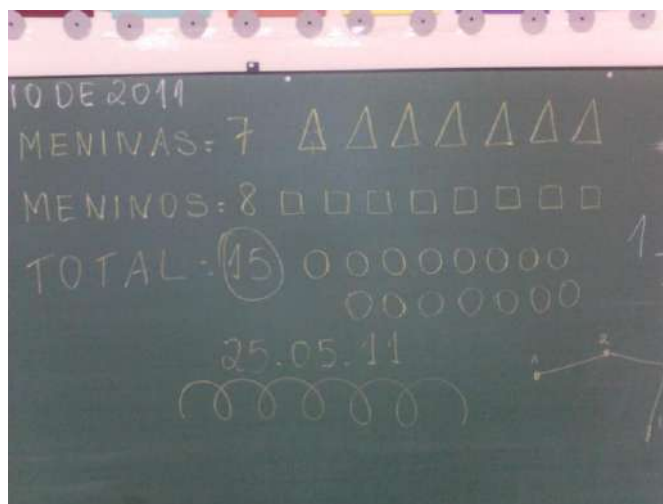 IO DE 2011
MENINAS: 7
MENINOS: 8
TOTAL: 15
25.05.11
1
A
2